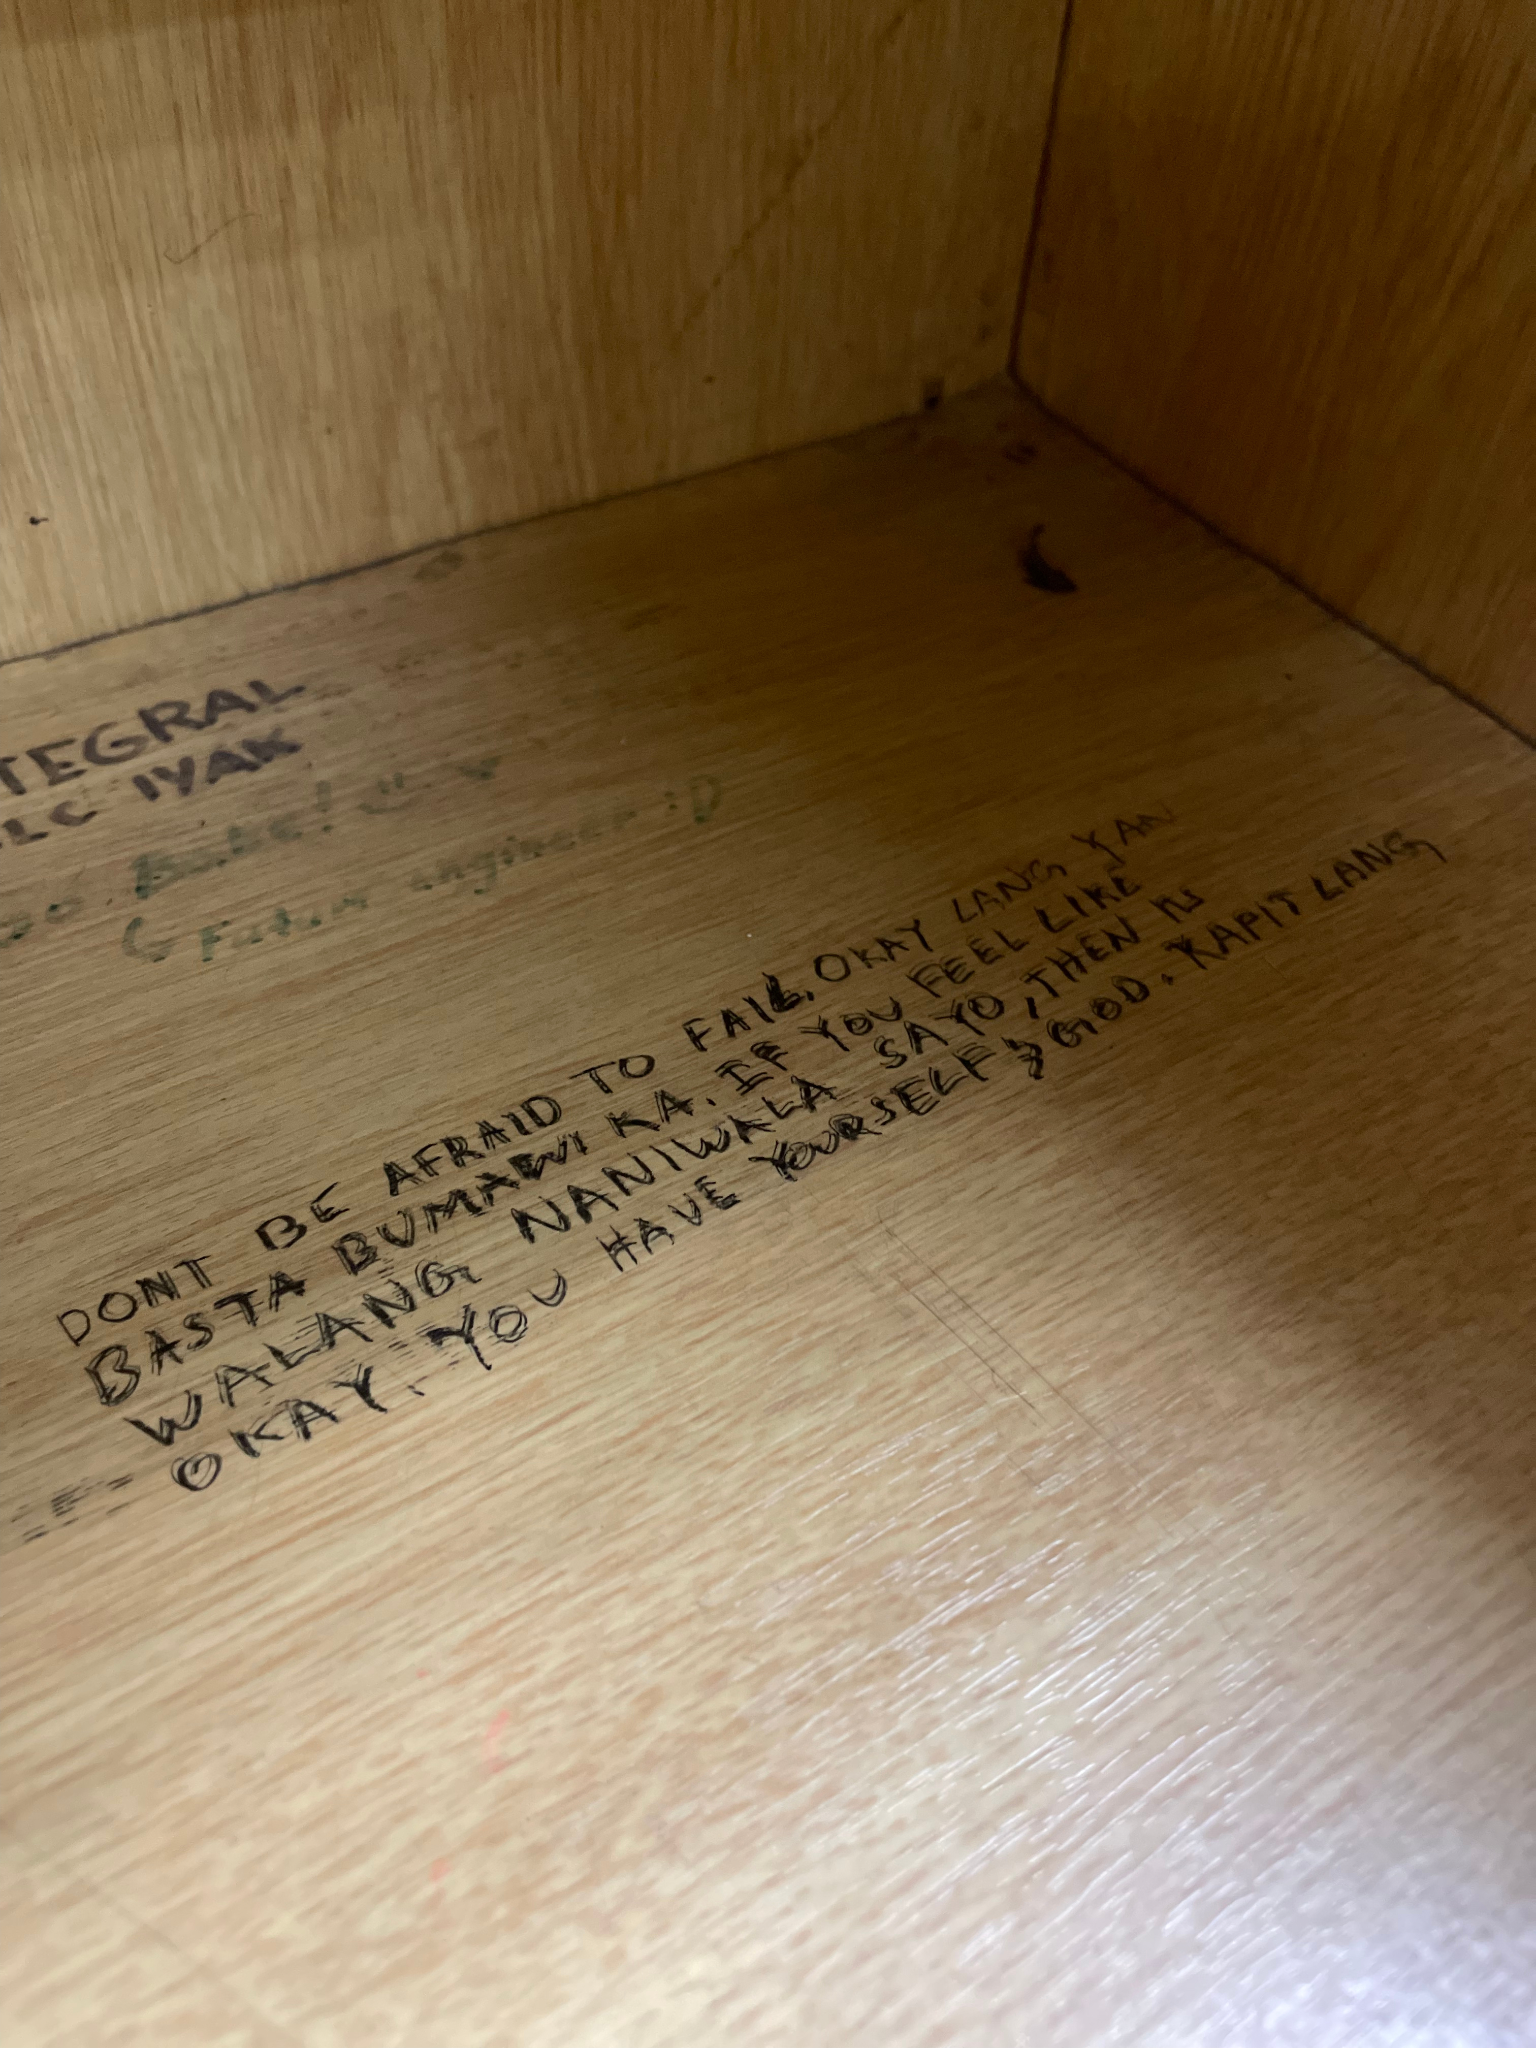 TEGRAL
LC IYAK
Babe!
Future engineer :D
DONT BE AFRAID TO FAIL. OKAY LANG YAN
BASTA BUMAWI KA. IF YOU FEEL LIKE
WALANG NANIWALA SAYO, THEN ITS
OKAY. YOU HAVE YOURSELF & GOD. KAPIT LANG